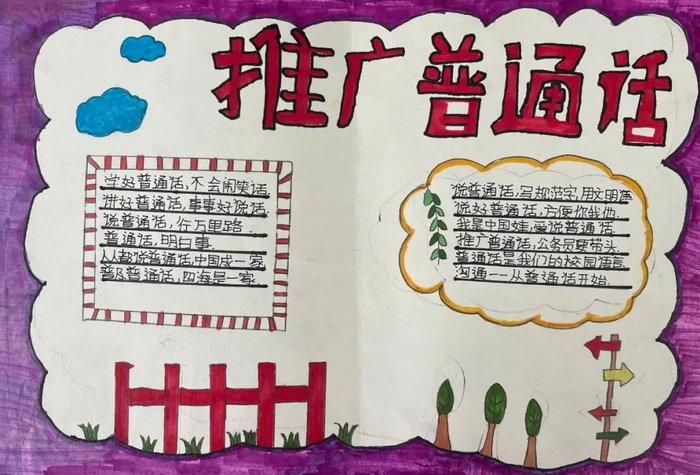 推广普通话
学好普通话,不会闹笑话.
讲好普通话,事事好说话.
说普通话,行万里路.
普通话,明白事.
人人都说普通话,中国成一家
普及普通话,四海是一家.
说普通话,写规范字,用文明语
说好普通话,方便你我他.
我是中国娃,爱说普通话.
推广普通话,公务员要带头.
普通话是我们的校园语言
沟通——从普通话开始.